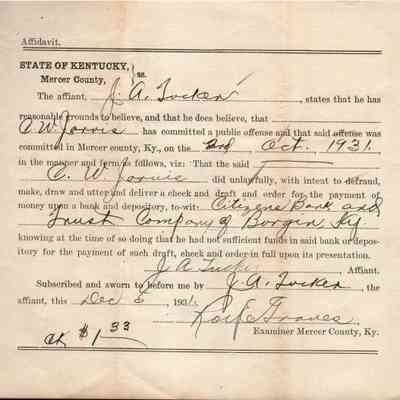 Affidavit.
STATE OF KENTUCKY, } ss.
Mercer County,
The affiant, J. A. Tucker, states that he has
reasonable grounds to believe, and that he does believe, that
C. W. Jarvis has committed a public offense and that said offense was
committed in Mercer county, Ky., on the 3rd Oct, 1931
in the manner and form as follows, viz: That the said
C. W. Jarvis did unlawfully, with intent to defraud,
make, draw and utter and deliver a check and draft and order for the payment of
money upon a bank and depository, to-wit: Citizens Bank and
Trust Company of Burgin, Ky.
knowing at the time of so doing that he had not sufficient funds in said bank or depos-
itory for the payment of such draft, check and order in full upon its presentation.
J. A. Tucker, Affiant.
Subscribed and sworn to before me by J. A. Tucker, the
affiant, this Dec 5, 1931.
Graves
Examiner Mercer County, Ky.
ck $1 33